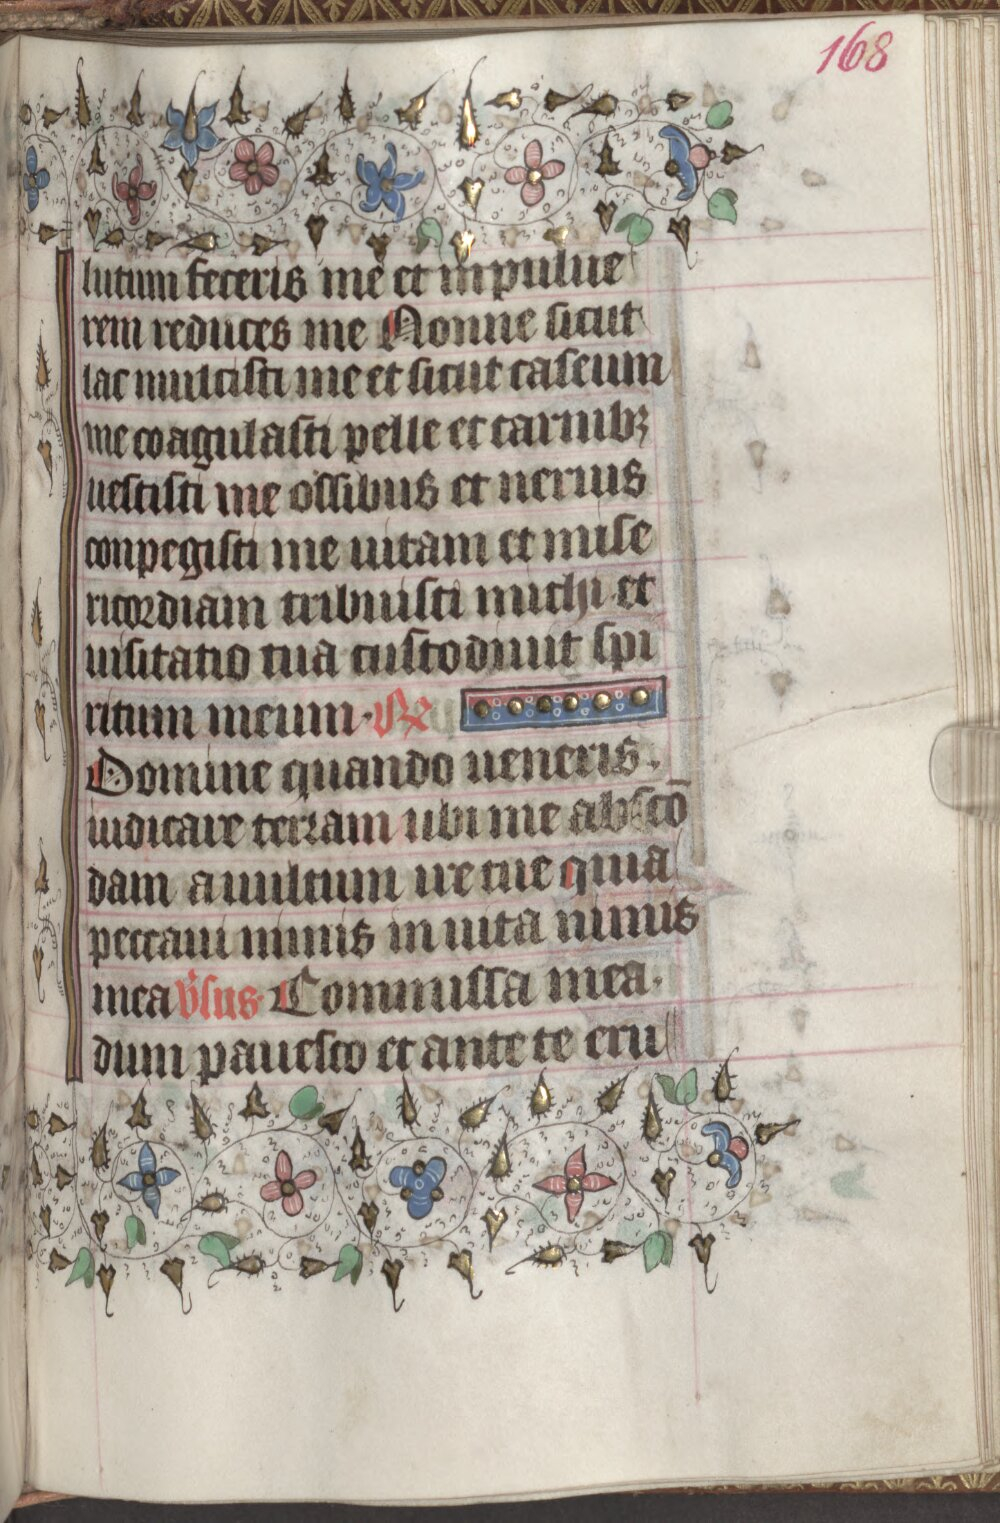 168
lutum feceris me et in pulue
rem reduces me Nonne sicut
lac mulcisti me et sicut caseum
me coagulasti pelle et carnibꝫ
uestisti me ossibus et neruis
conpegisti me uitam et mise
ricordiam tribuisti michi et
uisitatio tua custodiuit spi
ritum meum · ℟
Domine quando ueneris .
iudicare terram ubi me abscō
dam a uultum ire tue quia
peccaui nimis in uita nimis
mea v̾sus · Commissa mea ·
dum pauesco et ante te eru